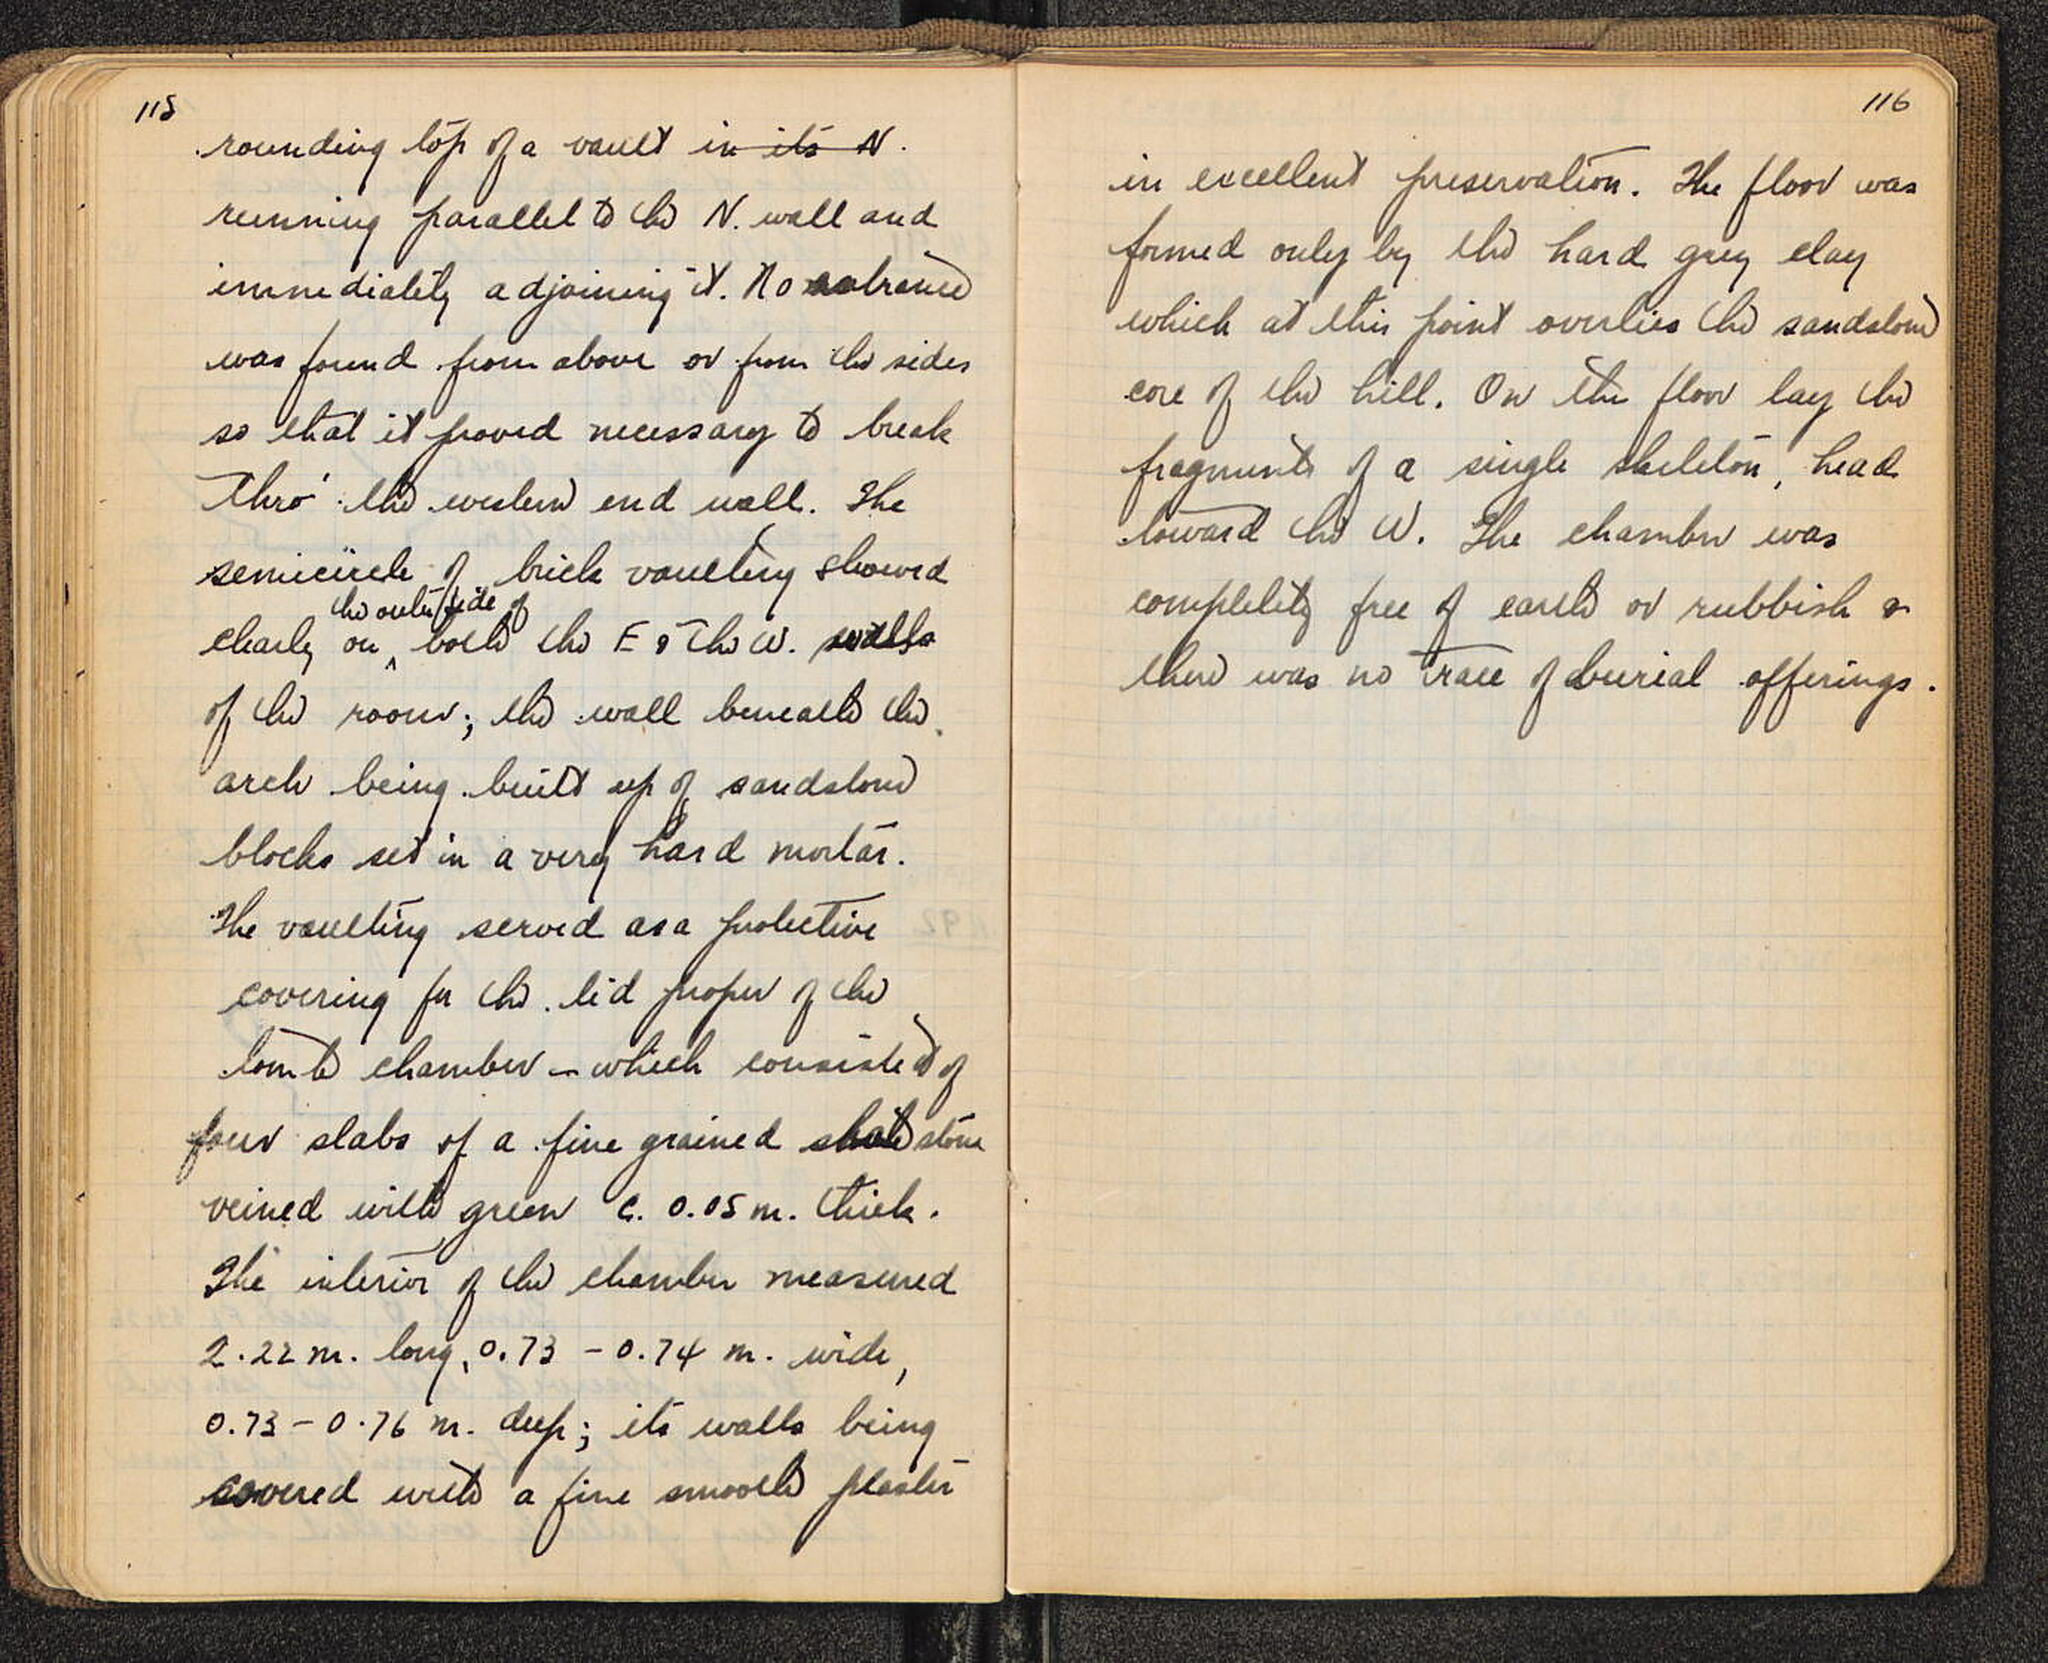 115
rounding top of a vault in its N.
running parallel to the N. wall and
immediately adjoining it. No entrance
was found from above or from the sides
so that it proved necessary to break
thro' the western end wall. The
semicircle of brick vaulting showed
the outer side of
clearly on ^ both the E & the W. walls
of the room; the wall beneath the
arch being built up of sandstone
blocks set in a very hard mortar.
The vaulting served as a protective
covering for the lid proper of the
tomb chamber – which consisted of
four slabs of a fine grained stone
veined with green c. 0.05 m. thick.
The interior of the chamber measured
2.22 m. long, 0.73 – 0.74 m. wide,
0.73 – 0.76 m. deep; its walls being
covered with a fine smooth plaster
116
in excellent preservation. The floor was
formed only by the hard grey clay
which at this point overlies the sandstone
core of the hill. On the floor lay the
fragments of a single skeleton, head
toward the W. The chamber was
completely free of earth or rubbish &
there was no trace of burial offerings.